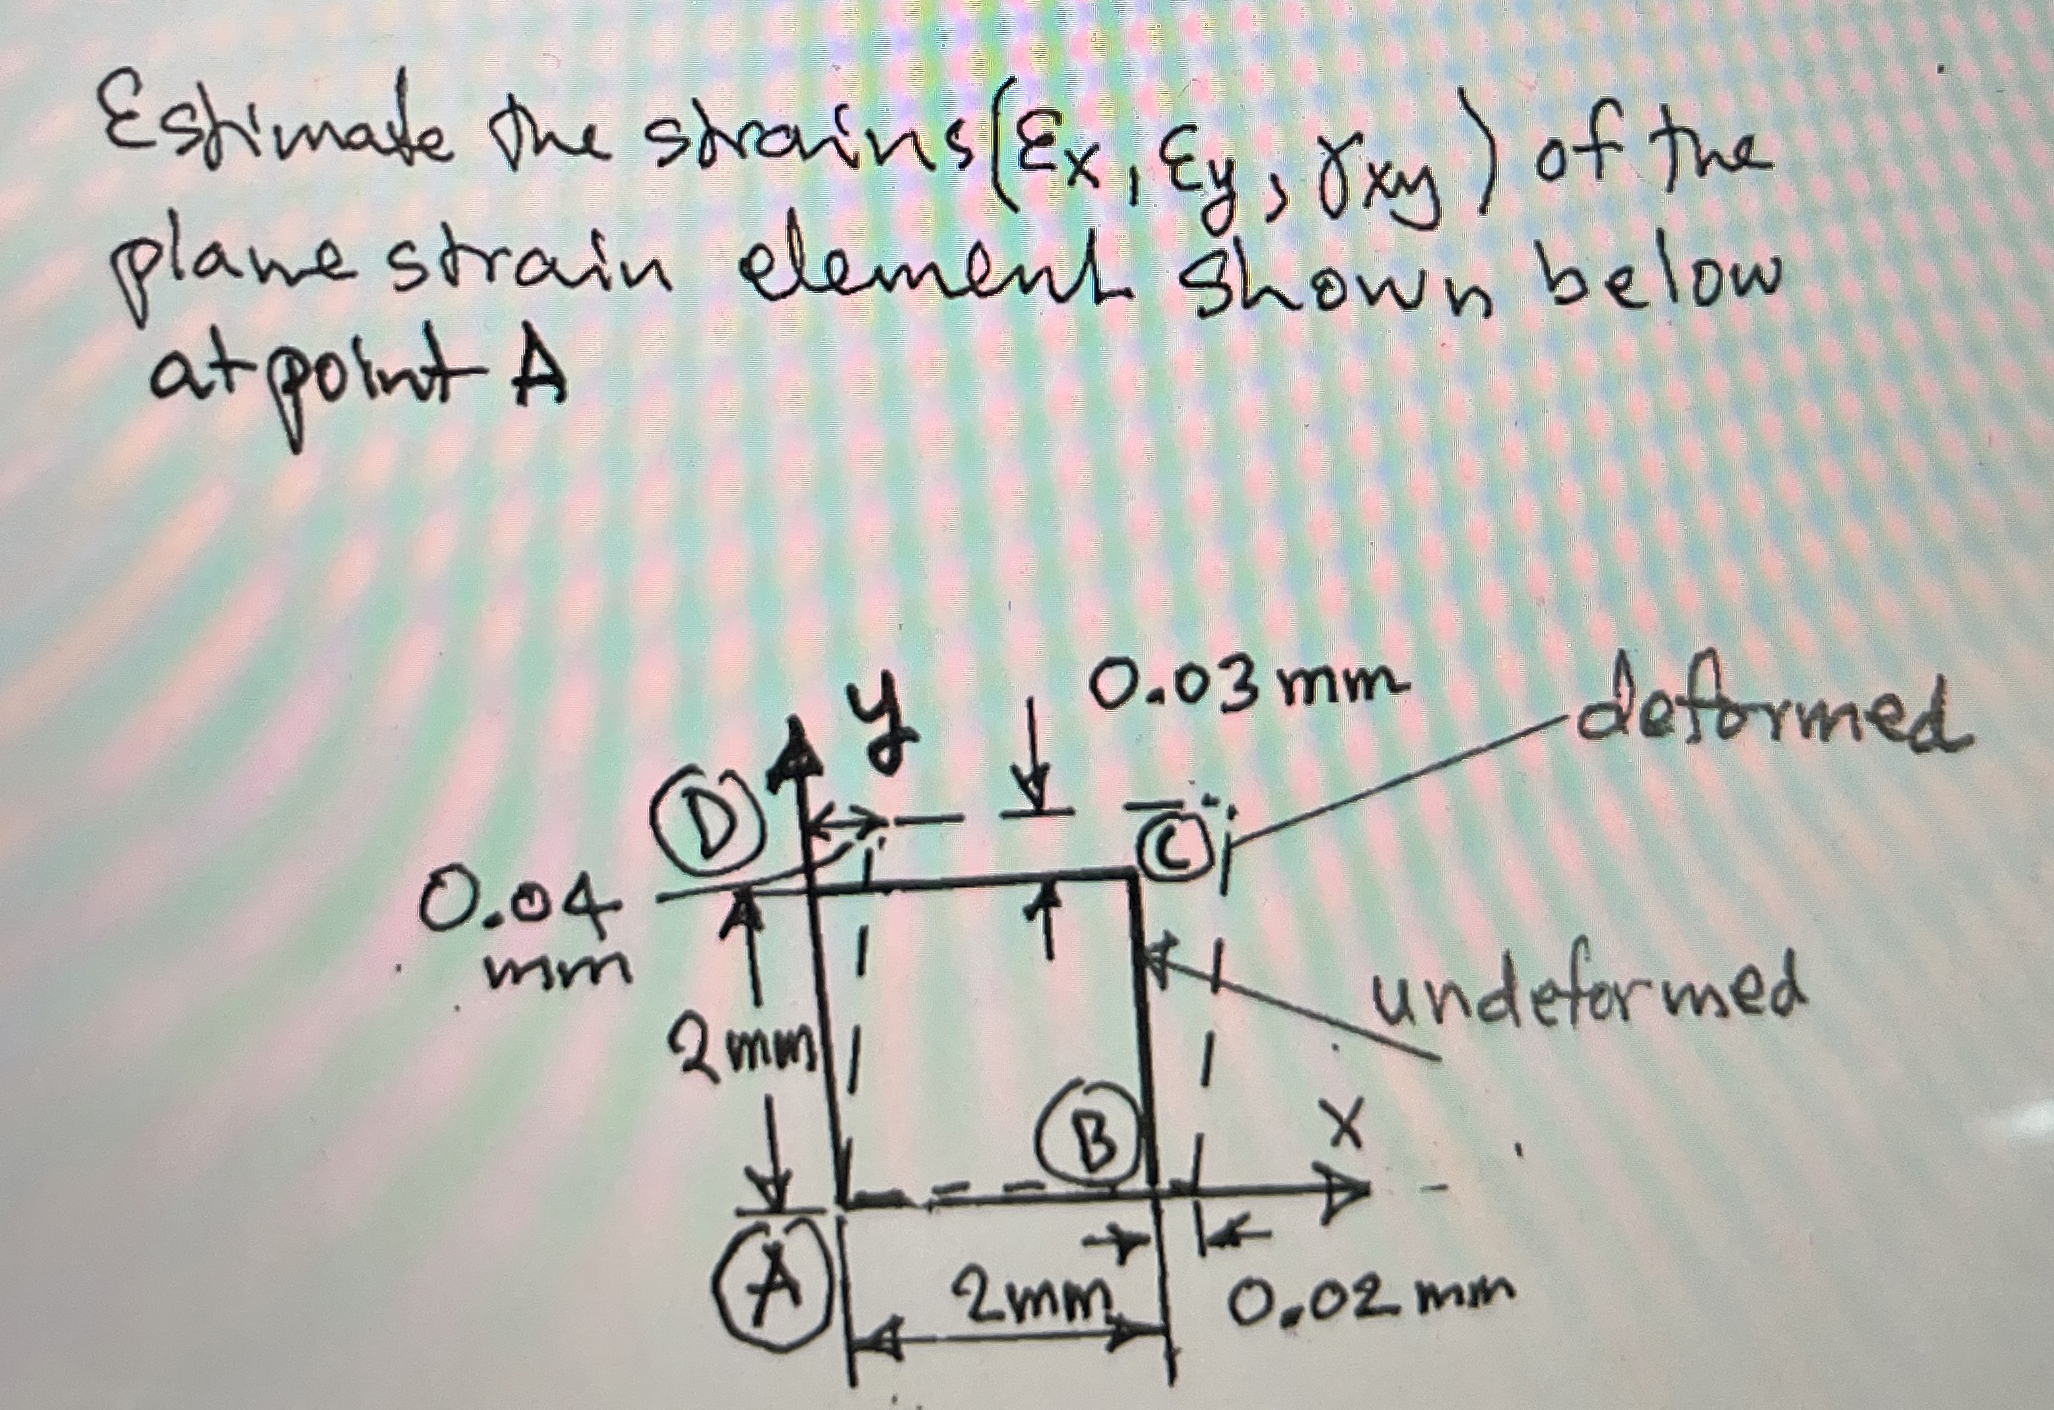 Estimate the strains (εx, εy, γxy) of the
plane strain element shown below
at point A
y
0.03 mm
deformed
D
C
0.04
mm
undeformed
2 mm
B
x
A
2 mm
0.02 mm